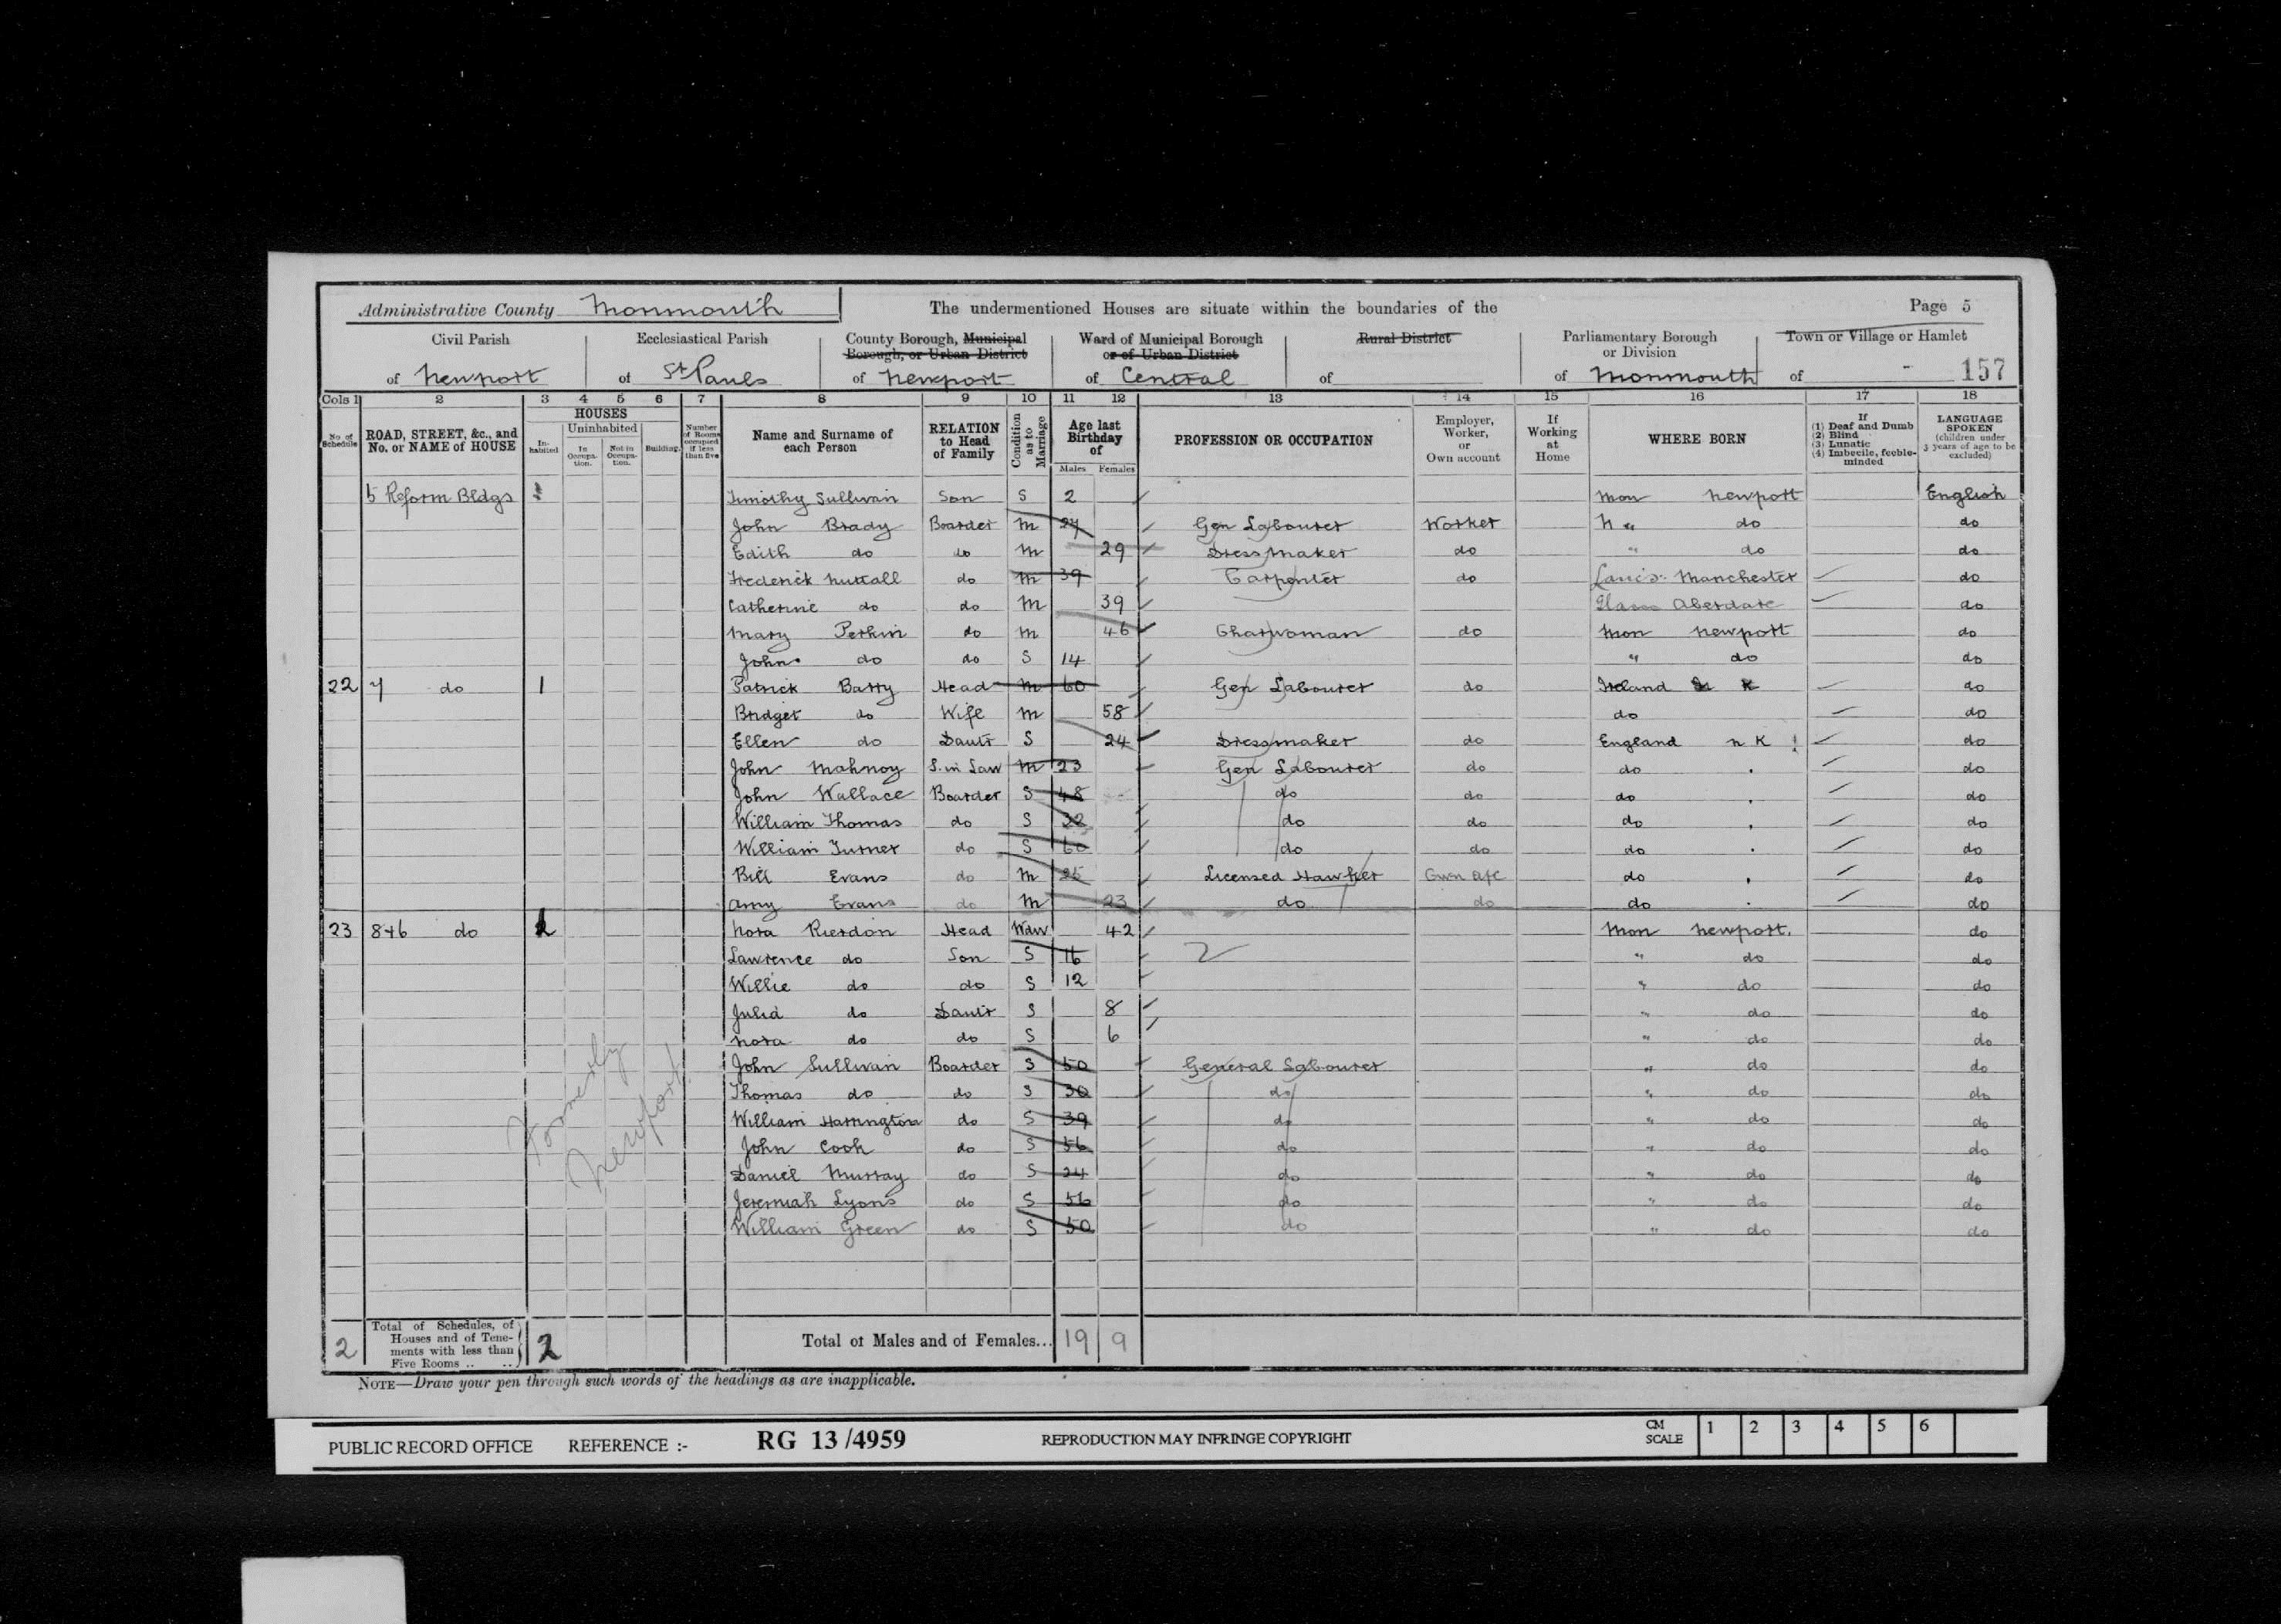 Administrative County Monmouth The undermentioned Houses are situate within the boundaries of the Page 5
Civil Parish Ecclesiastical Parish County Borough, Municipal Borough, or Urban District Ward of Municipal Borough or of Urban District Rural District Parliamentary Borough or Division Town or Village or Hamlet
of Newport of St Pauls of Newport of Central of of Monmouth of - 157
Cols 1 2 3 4 5 6 7 8 9 10 11 12 13 14 15 16 17 18
No. of Schedule ROAD, STREET, &c., and No. or NAME of HOUSE HOUSES Inhabited Uninhabited In Occupation. Not in Occupation. Building. Number of Rooms occupied if less than five Name and Surname of each Person RELATION to Head of Family Condition as to Marriage Age last Birthday of Males Females PROFESSION OR OCCUPATION Employer, Worker, or Own account If Working at Home WHERE BORN If (1) Deaf and Dumb (2) Blind (3) Lunatic (4) Imbecile, feeble-minded LANGUAGE SPOKEN (children under 3 years of age to be excluded)
5 Reform Bldgs Timothy Sullivan Son S 2 Mon Newport English
John Brady Boarder M 27 Gen Labourer Worker N " do do
Edith do do M 29 Dressmaker do " do do
Frederick Nuttall do M 39 Carpenter do Lancs. Manchester do
Catherine do do M 39 Glam Aberdare do
Mary Perkin do M 46 Charwoman do Mon Newport do
John do do S 14 " do do
22 7 do 1 Patrick Barry Head M 60 Gen Labourer do Ireland K do
Bridget do Wife M 58 do do
Ellen do Daur S 24 Dressmaker do England N K ! do
John Mahnoy S. in Law M 23 Gen Labourer do do do
John Wallace Boarder S 48 do do do do
William Thomas do S 32 do do do do
William Turner do S 60 do do do do
Bill Evans do M 25 Licensed Hawker Own a/c do do
Amy Evans do M 23 do do do do
23 8+6 do 1 Nora Rierdon Head Wdw 42 Mon Newport. do
Lawrence do Son S 16 " do do
Willie do do S 12 " do do
Julia do Daur S 8 " do do
Nora do do S 6 " do do
John Sullivan Boarder S 50 General Labourer " do do
Thomas do do S 30 do " do do
William Harrington do S 39 do " do do
John Cook do S 56 do " do do
Daniel Murray do S 24 do " do do
Jeremiah Lyons do S 56 do " do do
William Green do S 50 do " do do
Formerly
Newport
2 Total of Schedules, of Houses and of Tenements with less than Five Rooms .. .. 2 Total of Males and of Females... 19 9
NOTE—Draw your pen through such words of the headings as are inapplicable.
PUBLIC RECORD OFFICE REFERENCE :- RG 13 /4959 REPRODUCTION MAY INFRINGE COPYRIGHT CM SCALE 1 2 3 4 5 6